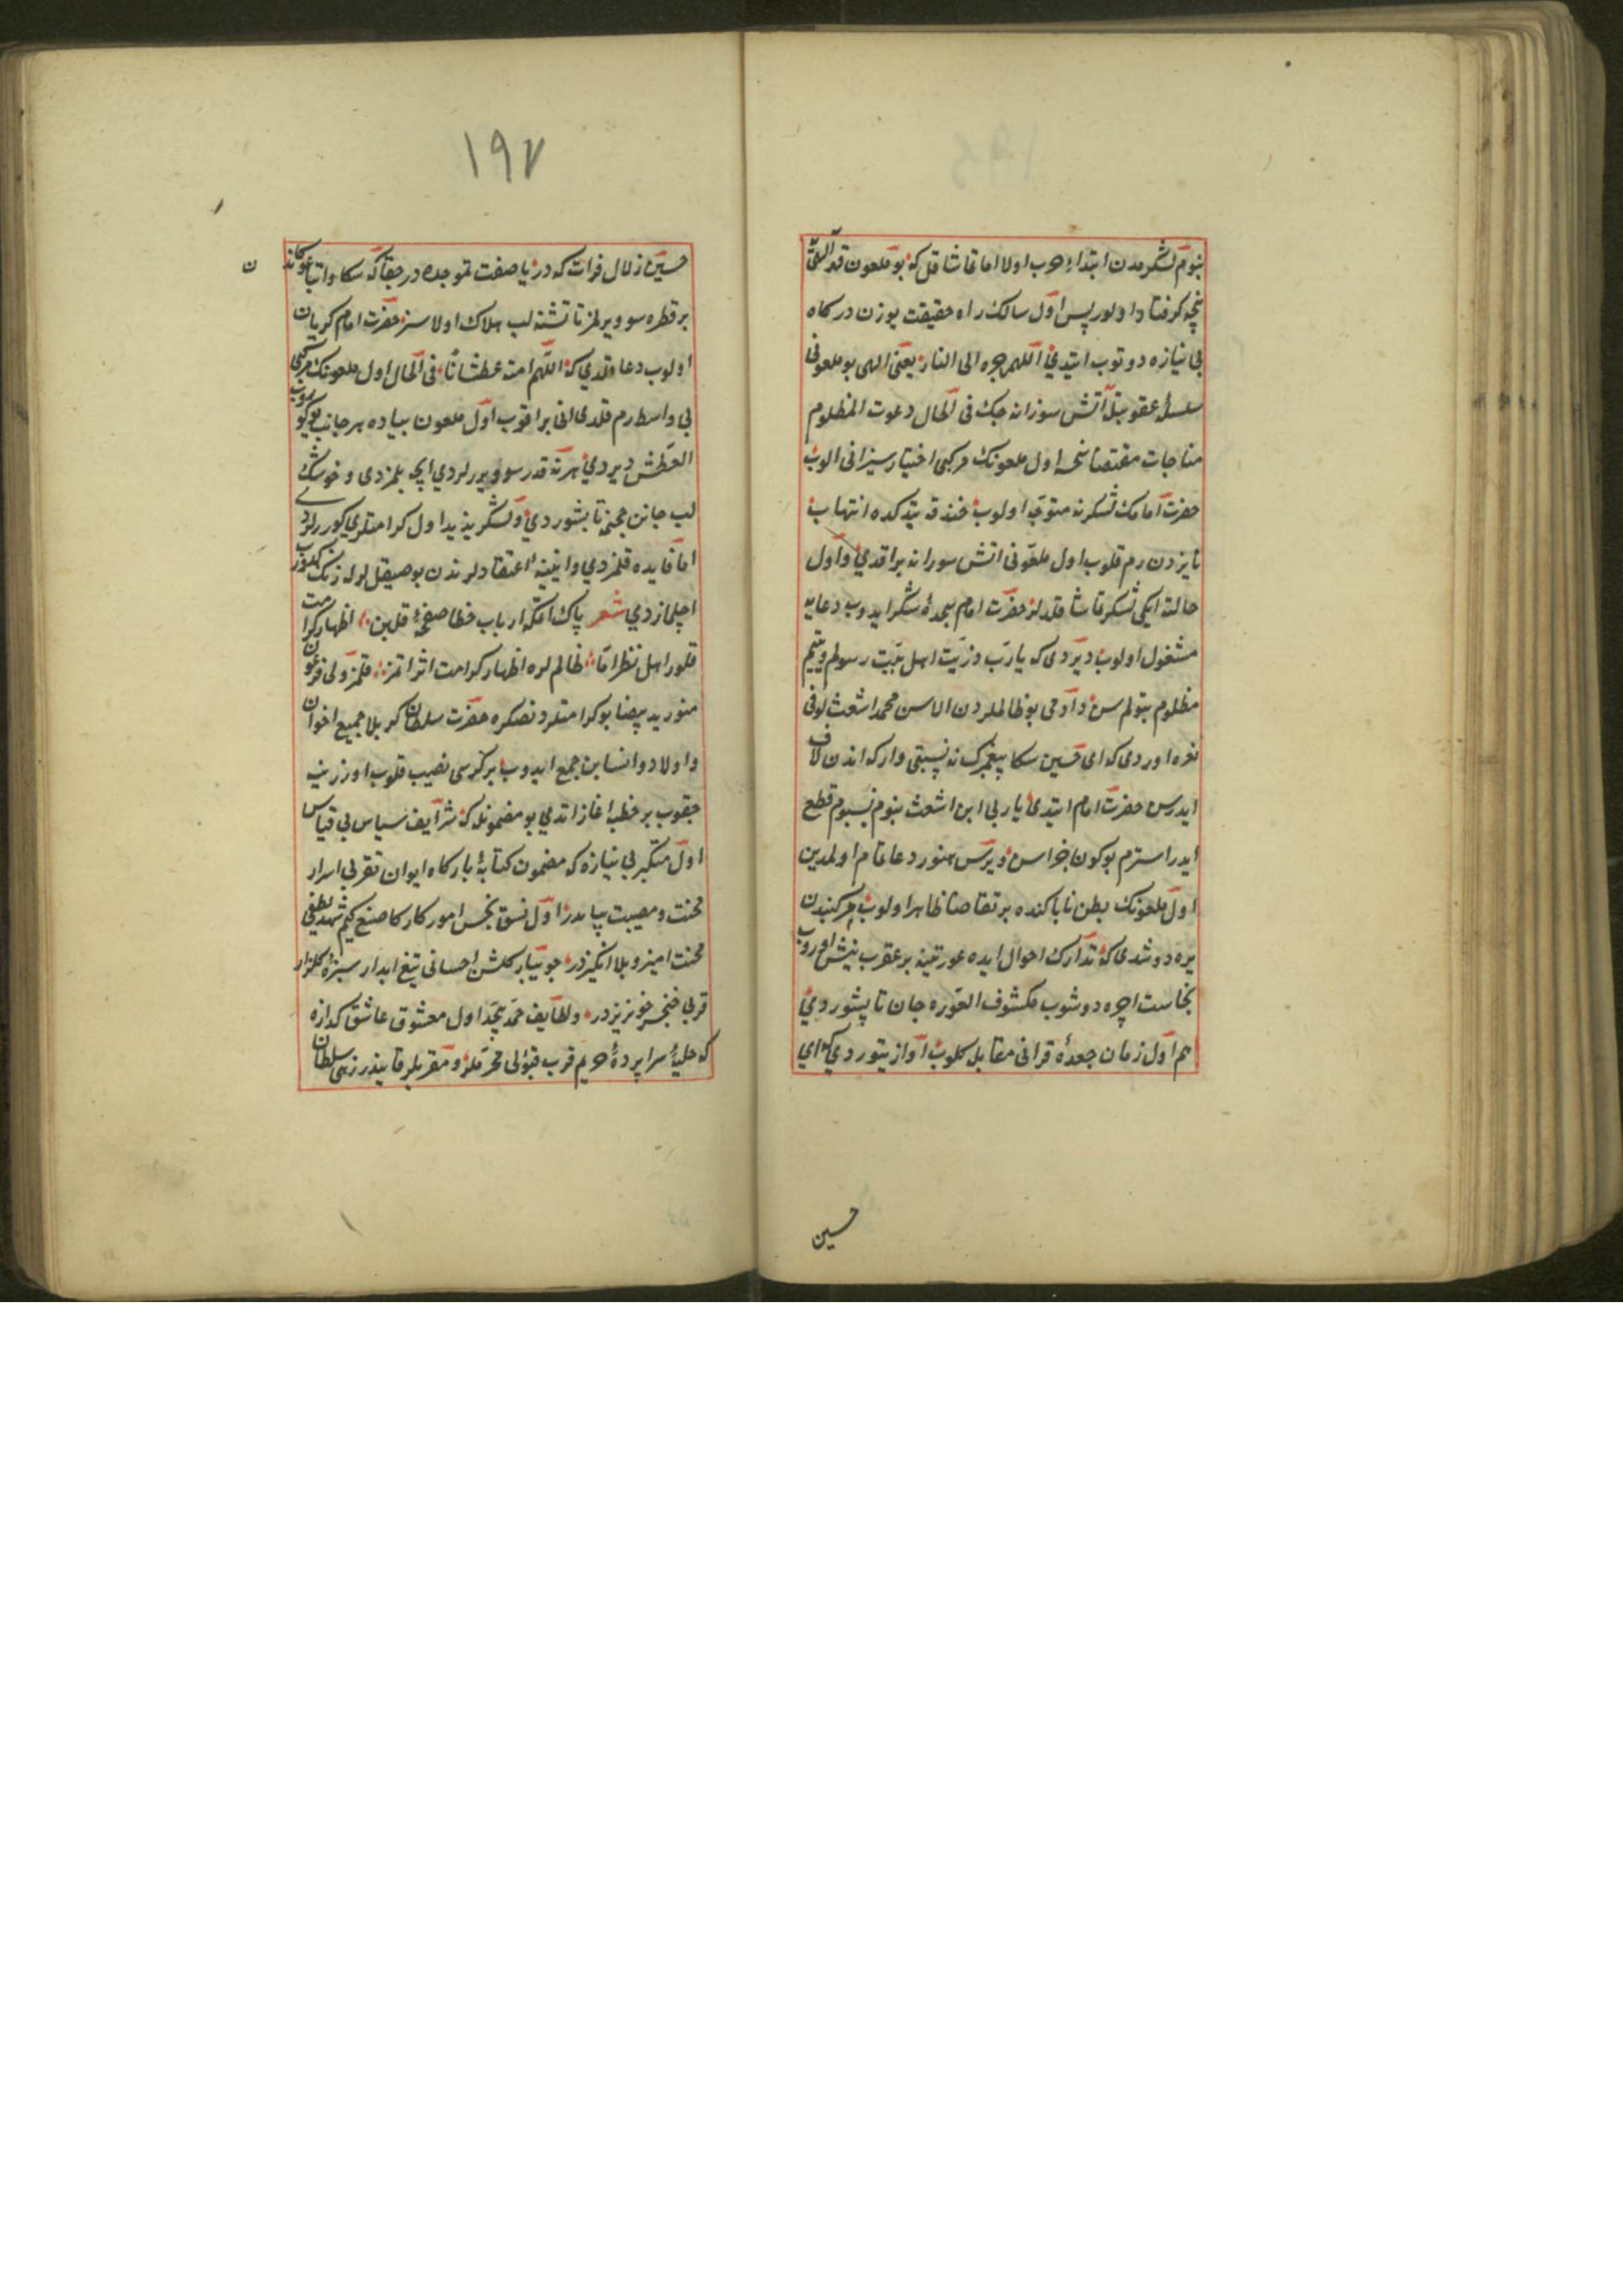 بنوم لشكرمدن ابتداء حرب اولا اما تماشا قل كه بو ملعون قهر الهی
نیجه گرفتار اولور پس اول سالك راه حقیقت یوزن درگاه
بی نیازه دوتوب ایتدی اللهم جره الی النار یعنی الهی بو ملعونی
سلسله عقوبتله آتش سوزانه چك فی الحال دعوت المظلوم
مناجات مقتضاسنجه اول ملعونك مركبی اختیارسیز انی الوب
حضرت امامك لشكرنه متوجه اولوب خندق یتدكده التهاب
نایره دن رم قلوب اول ملعونی اتش سوزانه براقدی و اول
حالته ایكی لشكر تماشا قلدلر حضرت امام سجدۀ شكر ایدوب دعایه
مشغول اولوب دیردی كه یا رب ذریت اهل بیت رسولم و یتیم
مظلوم بتولم سن دادمی بو ظالملردن الاسن محمد اشعث لوفی
نعره اوردی كه ای حسین سكا پیغمبرك نه نسبتی وار كه اندن لاف
ایدرسن حضرت امام ایتدی یا ربی ابن اشعث بنوم نسبوم قطع
ایدر استرم بوكون جزاسن ویرسن هنوز دعا تمام اولمدین
اول ملعونك بطن ناپاكنده بر تقاضا ظاهر اولوب مركبندن
یره دوشدی كه تدارك احوال ایده عورتینه بر عقرب نیش اوروب
نجاست اچره دوشوب مكشوف العوره جان تاپشوردی
هم اول زمان جعدۀ قرانی مقابل كلوب آواز یتوردی كه ای
حسین
١٩٧
حسین زلال فرات كه دریا صفت تموجده در حقا كه سكا و اتباعوكا
بر قطره سو ویرلمز تا تشنه لب هلاك اولاسز حضرت امام گریان
اولوب دعا قلدی كه اللهم امته عطشانا فی الحال اول ملعونك مركبی
بی واسطه رم قلدی انی براقوب اول ملعون پیاده هر جانب یوكوروب
العطش دیردی هر نه قدر سو ویررلردی اچه بلمزدی و خوشك
لب جانن جهنمه تاپشوردی و لشكر یزید اول كرامتلری كوررلردی
اما فایده قلمزدی و آیینه اعتقادلرندن بو صیقل لرله زنك كدورت
اچلمازدی شعر پاك ایتمكه ارباب خطا صفحۀ قلبن اظهار كرامت
قلور اهل نظر اما ظالم لره اظهار كرامت اثر اتمز قلمز ولی فرعون
منور ید بیضا بو كرامتلردنصكره حضرت سلطان كربلا جمیع اخوان
و اولاد و انسابن جمع ایدوب بر كرسی نصیب قلوب اوزرینه
چقوب بر خطبه اغاز اتدی بو مضمونله كه شرایف سپاس بی قیاس
اول متكبر بی نیازه كه مضمون كتابۀ باركاه ایوان تقربی اسرار
محنت و مصیبت پیاندر اول نسق بخش امور كارگاه صنع كیم شهد لطفی
محنت امیز و بلا انگیزدر جویبار كلشن احسانی تیغ ابدار سبزۀ كلزار
قربی خنجر خونریزدر و لطایف حمد بیحد اول معشوق عاشق گدازه
كه حلیۀ سراپردۀ حریم قرب قبولی محرملر و مقربلر قانیدر زهی سلطان